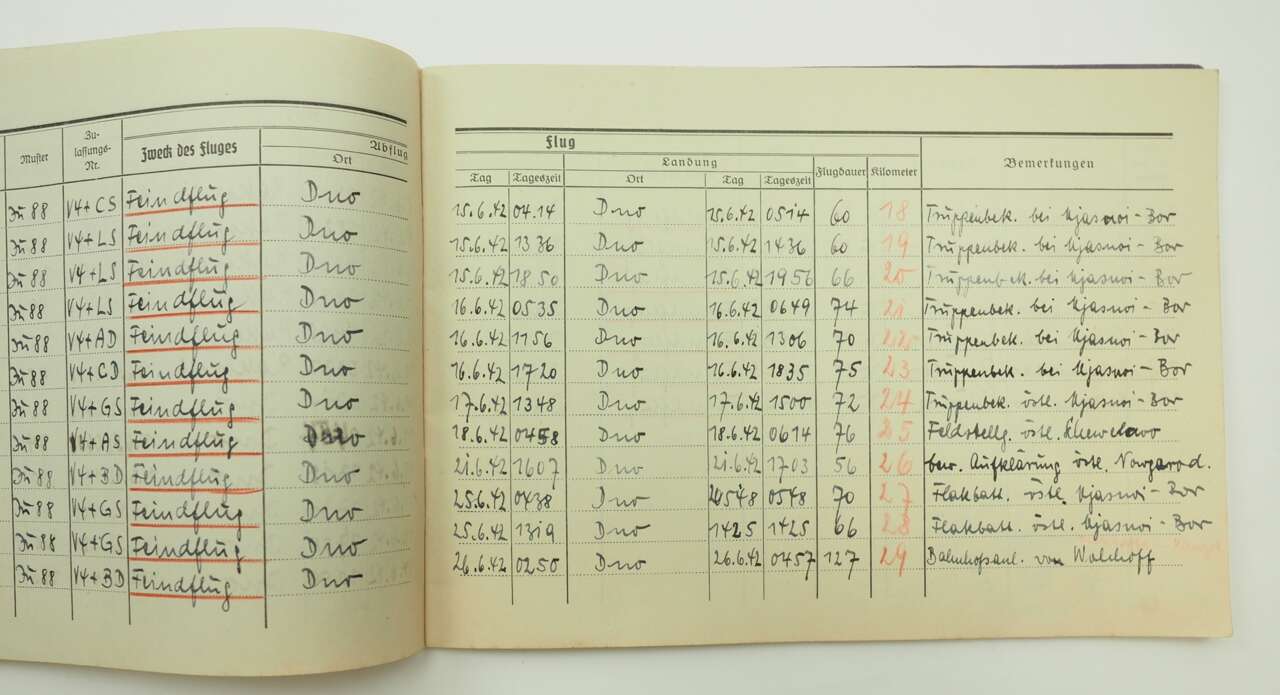 Muster Zu-lassungs-Nr. Zweck des Fluges Abflug
Ort
Flug
Landung Flugdauer Kilometer Bemerkungen
Tag Tageszeit Ort Tag Tageszeit
Ju 88 V4+CS Feindflug Dno 15.6.42 04.14 Dno 15.6.42 0514 60 18 Truppenbek. bei Mjasnoi-Bor
Ju 88 V4+LS Feindflug Dno 15.6.42 1336 Dno 15.6.42 1436 60 19 Truppenbek. bei Mjasnoi-Bor
Ju 88 V4+LS Feindflug Dno 15.6.42 18.50 Dno 15.6.42 1956 66 20 Truppenbek. bei Mjasnoi-Bor
Ju 88 V4+LS Feindflug Dno 16.6.42 0535 Dno 16.6.42 0649 74 21 Truppenbek. bei Mjasnoi-Bor
Ju 88 V4+AD Feindflug Dno 16.6.42 1156 Dno 16.6.42 1306 70 22 Truppenbek. bei Mjasnoi-Bor
Ju 88 V4+CD Feindflug Dno 16.6.42 1720 Dno 16.6.42 1835 75 23 Truppenbek. bei Mjasnoi-Bor
Ju 88 V4+GS Feindflug Dno 17.6.42 1348 Dno 17.6.42 1500 72 24 Truppenbek. östl. Mjasnoi-Bor
Ju 88 V4+AS Feindflug Dno 18.6.42 0458 Dno 18.6.42 0614 76 25 Feldstellg. östl.
Ju 88 V4+BD Feindflug Dno 21.6.42 1607 Dno 21.6.42 1703 56 26 bew. Aufklärung östl. Nowgorod.
Ju 88 V4+GS Feindflug Dno 25.6.42 0438 Dno 0548 70 27 Flakbatt. östl. Mjasnoi-Bor
Ju 88 V4+GS Feindflug Dno 25.6.42 1319 Dno 1425 1425 66 28 Flakbatt. östl. Mjasnoi-Bor
Ju 88 V4+BD Feindflug Dno 26.6.42 0250 Dno 26.6.42 0457 127 29 Bahnhofsanl. von Walchoff